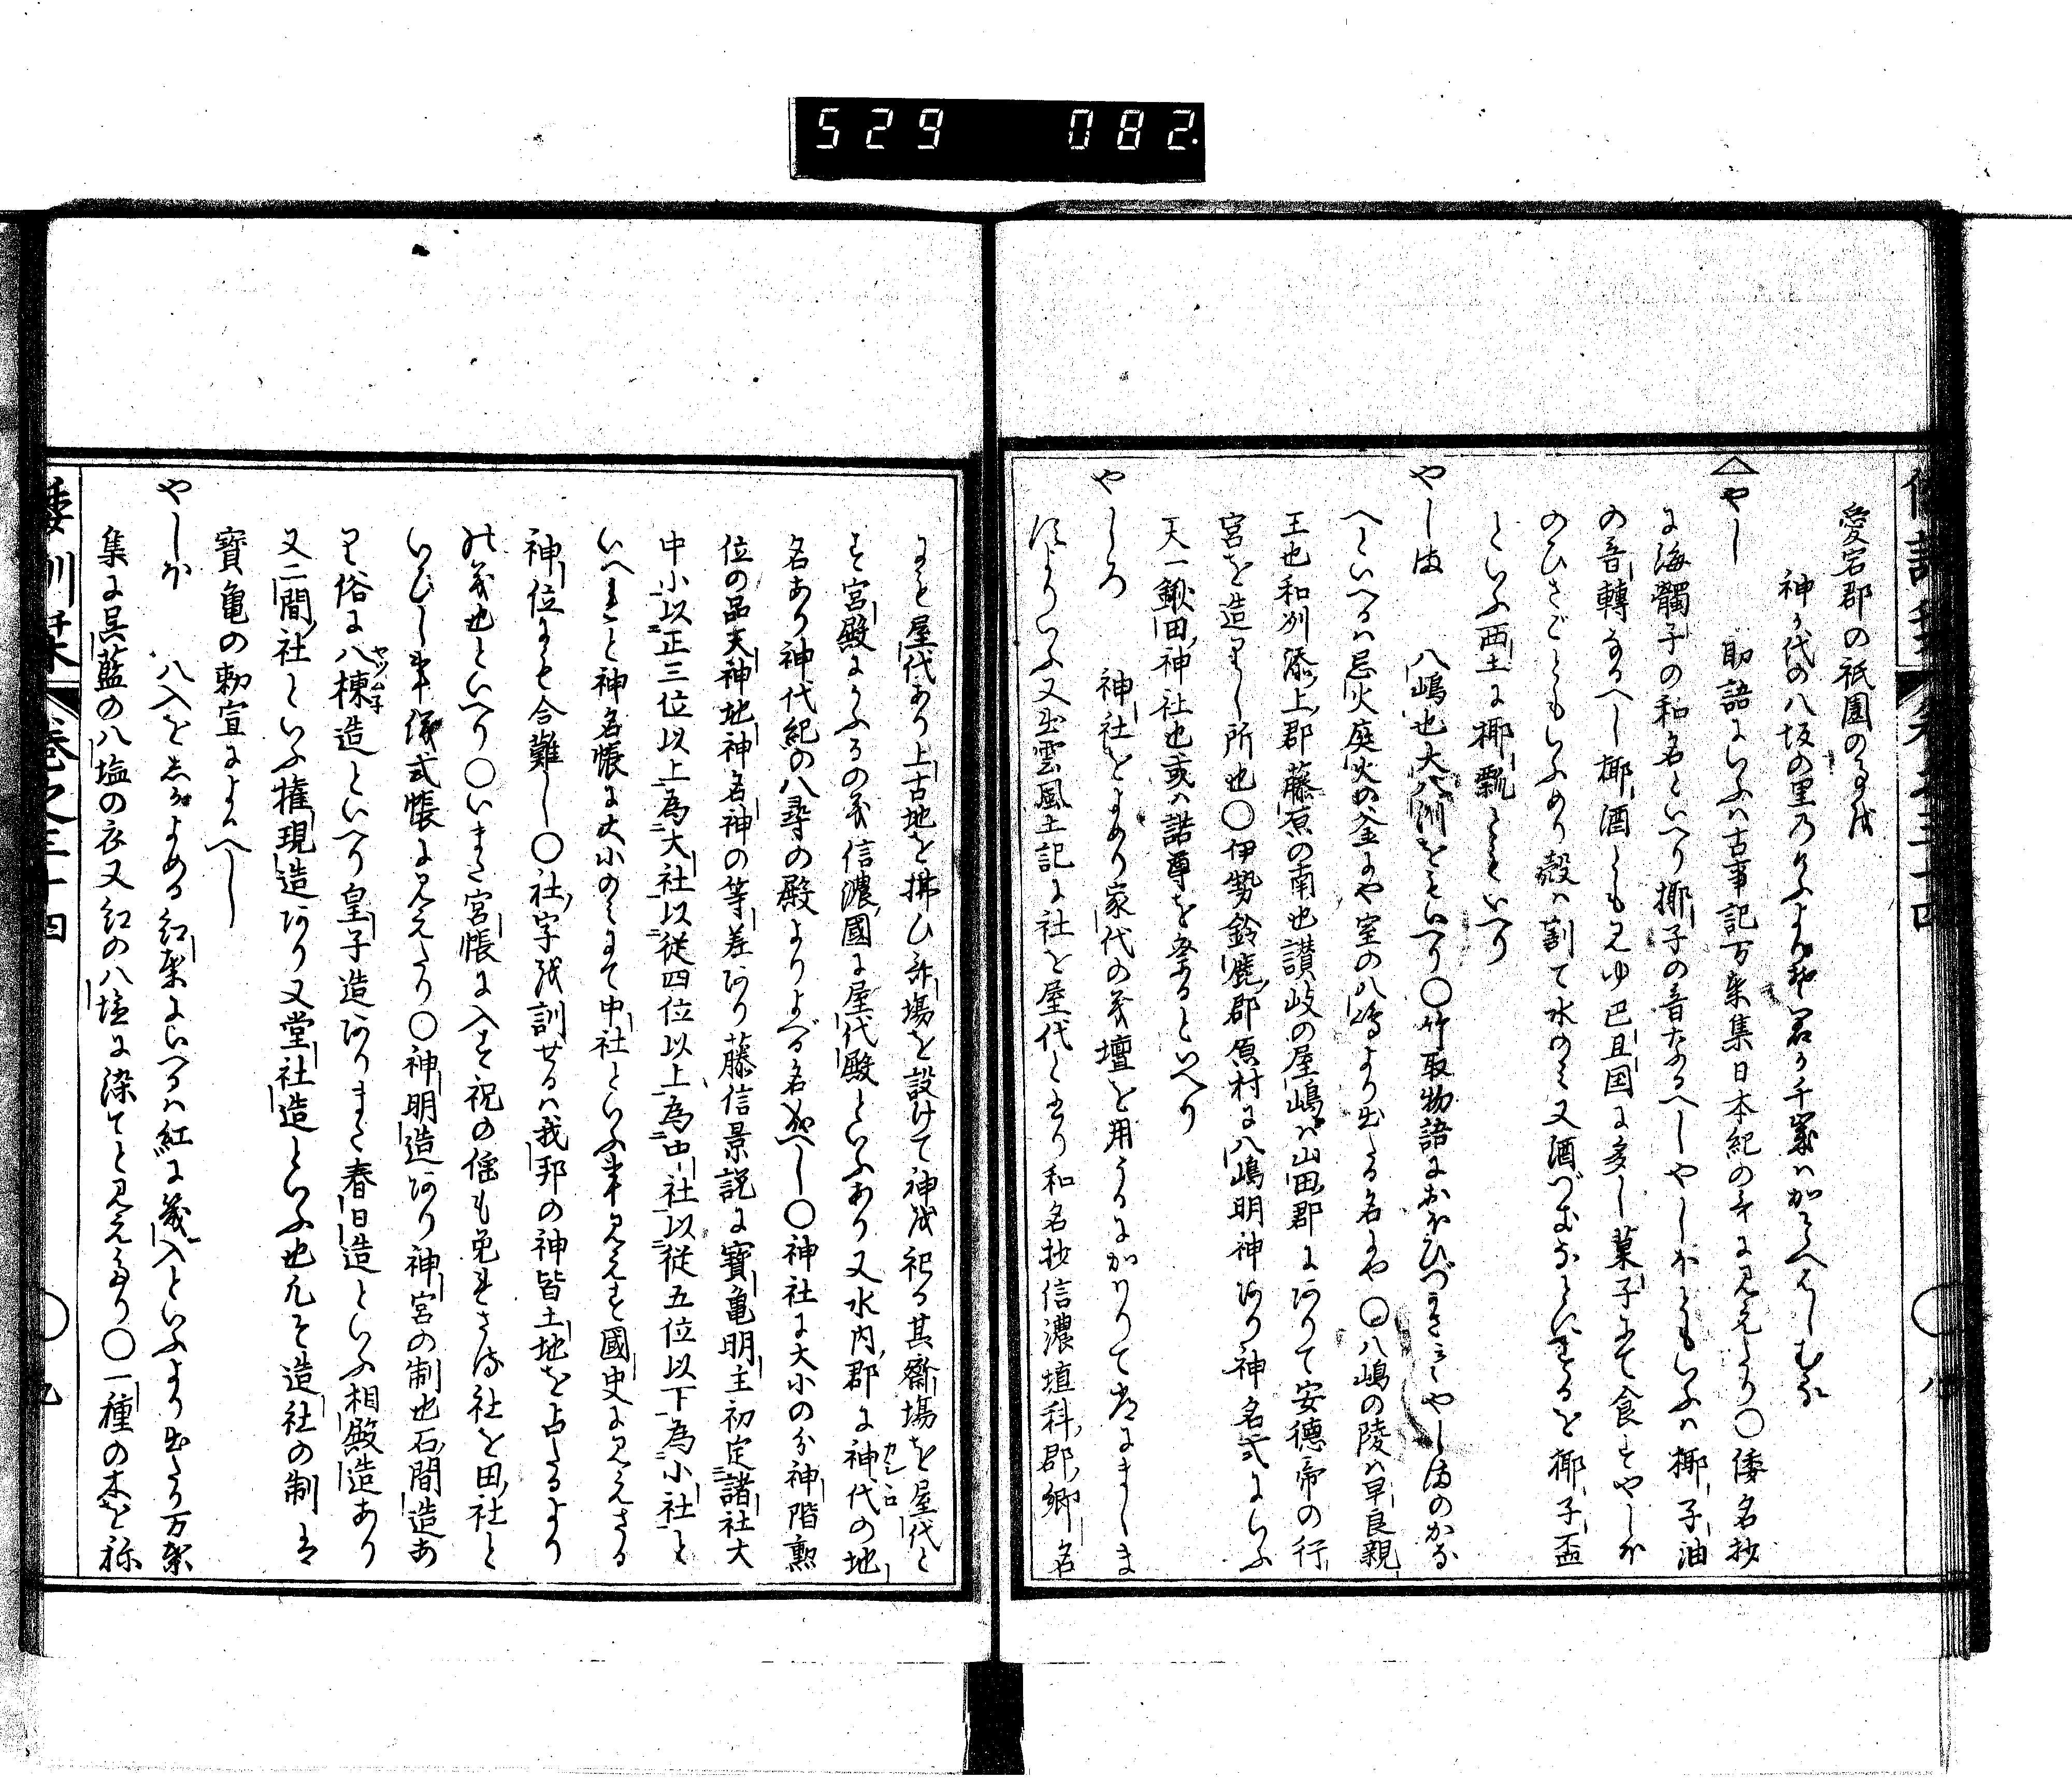 529 082.
愛宕郡の祇園の事成
神か代の八坂の里乃けふよりそ君か千家はかそへはしむる
やし 助語にいふは古事記万葉集日本紀の哥に見えたり○倭名抄
に海髑子の和名といへり椰子の音なるへしやしほともいふは椰子油
の音轉なるへし椰酒ともみゆ巴且国に多し菓子にて食すやしほ
のひさごともいふめり殻は割て水のミ又酒づむなとにするを椰子盃
といふ西土に椰瓢ともいへり
やしま 八嶋也大八洲をもいへり○竹取物語におほひづかさミやしまのかな
へといへるは忌火庭火の釜にや室の八嶋より出たる名にや○八嶋の陵は早良親
王也和州添上郡藤原の南也讃岐の屋嶋は山田郡にありて安徳帝の行
宮を造りし所也○伊勢鈴鹿郡原村に八嶋明神あり神名式にいふ
天一鍬田神社也或は諾尊を祭るといへり
やしろ 神社をよめり家代の義壇を用うるにかはりて常にまします
によりいふ又出雲風土記に社を屋代とせり和名抄信濃埴科郡郷名
にも屋代あり上古地を拂ひ斎場を設けて神を祀る其齋場を屋代と
す宮殿にかふるの義信濃國に屋代殿といふあり又水内郡に神代の地
カシロ
名あり神代紀の八尋の殿よりよべる名成へし○神社に大小の分神階勲
位の品天神地神名神の等差あり藤信景説に寳亀明主初定諸社大
中小以正三位以上為大社以従四位以上為中社以従五位以下為小社と
いへれと神名帳に大小のミにて中社といふ事見えす國史に見えたる
神位にも合難し○社字を訓せるは我邦の神皆土地を占たるより
の義也といへり○いまた宮帳に入す祝の傜も免れさる社を田社と
いひし事儀式帳に見えたり○神明造あり神宮の制也石間造あ
り俗に八棟造といへり皇子造ありまた春日造といふ相殿造あり
ヤツムネ
又二間社といふ権現造あり又堂社造といふ也凡そ造社の制は
寳亀の勅宣によるへし
やしほ 八入をよめる紅葉にいへるは紅に幾入といふより出たり万葉
集に呉藍の八塩の衣又紅の八塩に染てと見えたり○一種の木を称
倭訓栞 巻之三十四 九